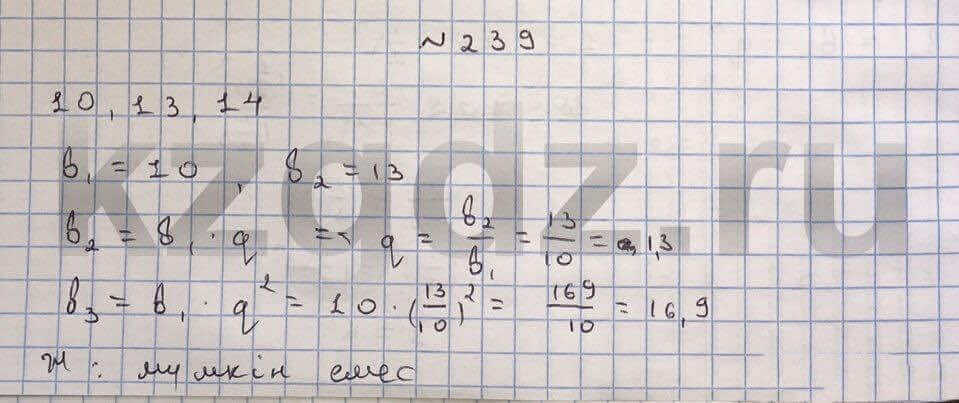 № 239
10, 13, 14
b₁ = 10, b₂ = 13
b₂ = b₁ · q => q = b₂/b₁ = 13/10 = 1,3
b₃ = b₁ · q² = 10 · (13/10)² = 169/10 = 16,9
Ж: мүмкін емес
kzgdz.ru